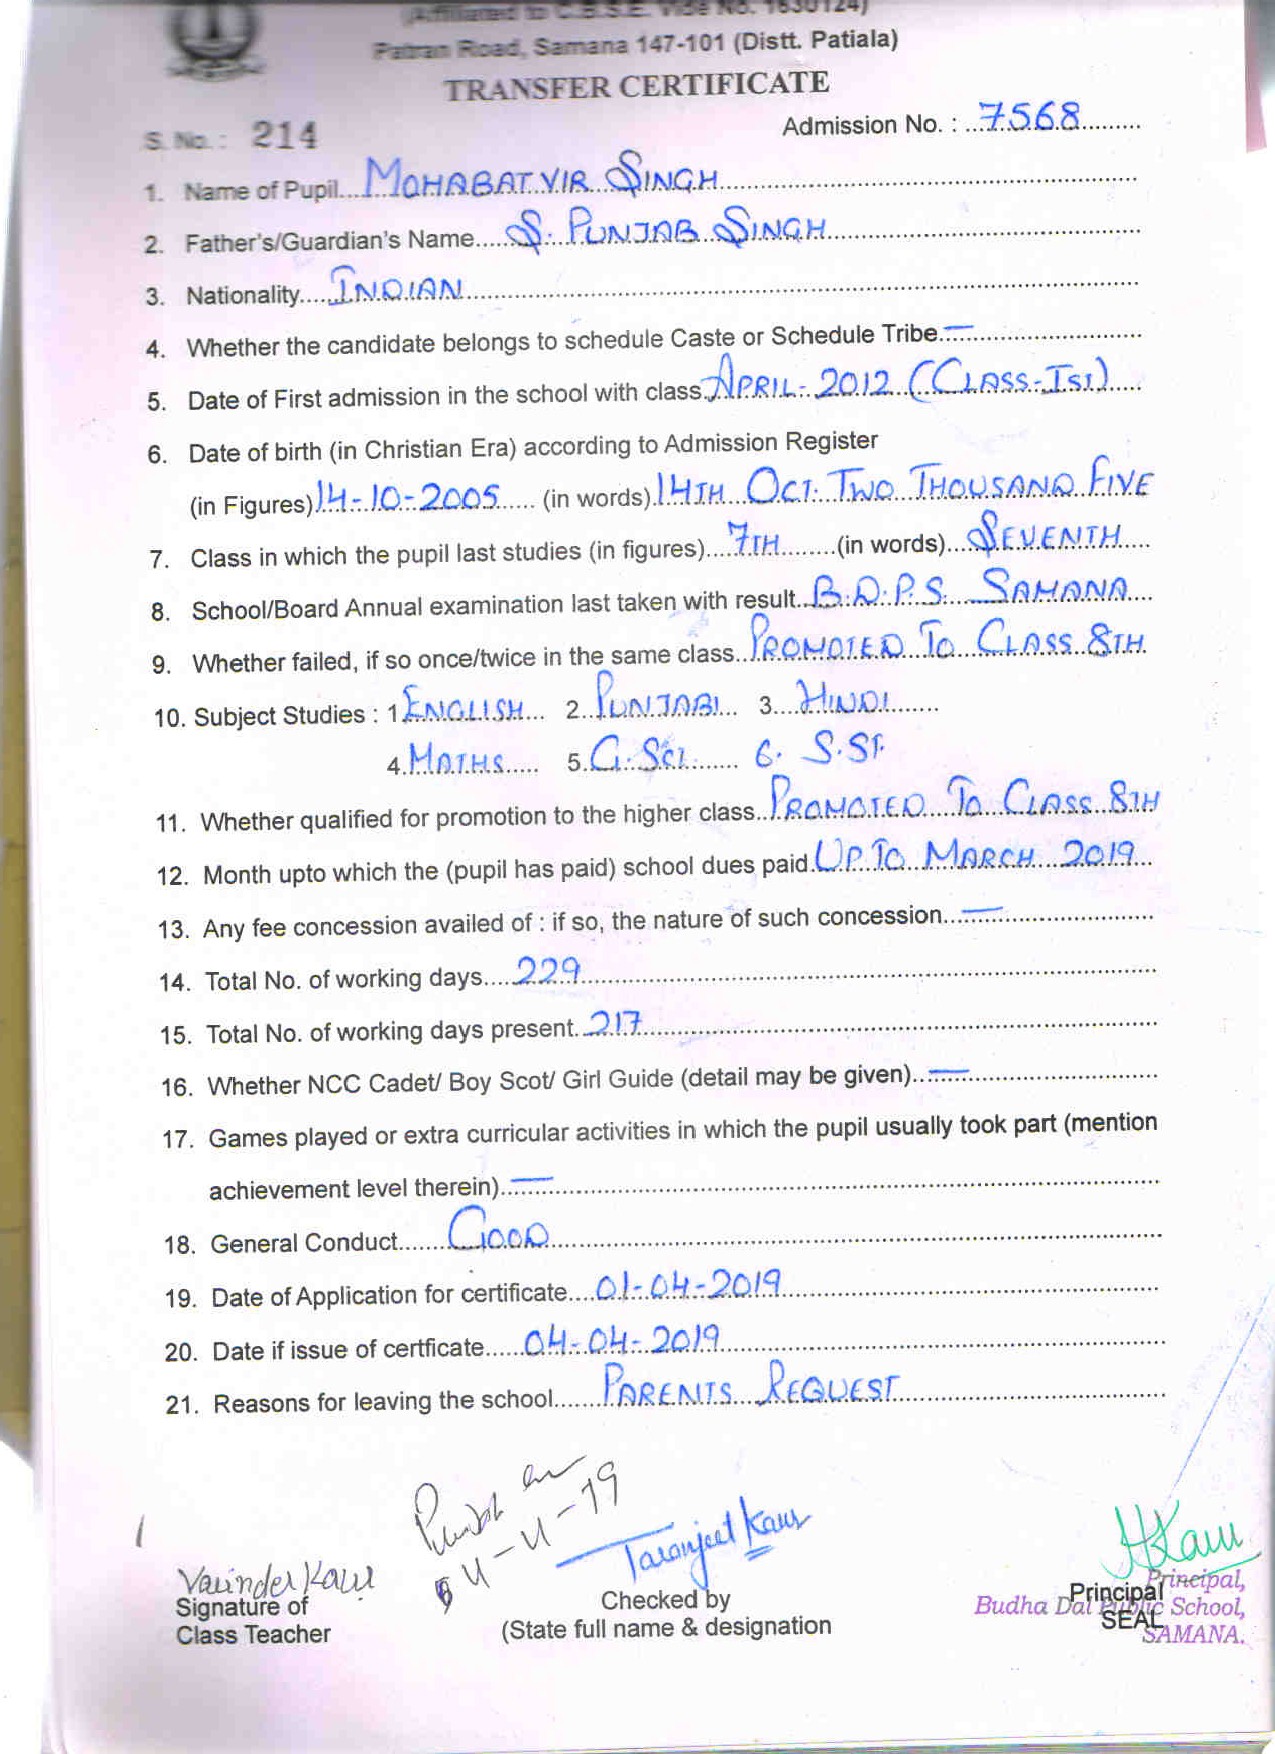 (Affiliated to C.B.S.E. Vide No. 1630124)
Patran Road, Samana 147-101 (Distt. Patiala)
TRANSFER CERTIFICATE
S. No. : 214
Admission No. : 7568
1. Name of Pupil MOHABATVIR SINGH
2. Father's/Guardian's Name S. PUNJAB SINGH
3. Nationality INDIAN
4. Whether the candidate belongs to schedule Caste or Schedule Tribe —
5. Date of First admission in the school with class APRIL-2012 (CLASS-IST)
6. Date of birth (in Christian Era) according to Admission Register
(in Figures) 14-10-2005 (in words) 14TH OCT. TWO THOUSAND FIVE
7. Class in which the pupil last studies (in figures) 7TH (in words) SEVENTH
8. School/Board Annual examination last taken with result B.D.P.S. SAMANA
9. Whether failed, if so once/twice in the same class PROMOTED TO CLASS 8TH
10. Subject Studies : 1 ENGLISH 2. PUNJABI 3. HINDI
4. MATHS 5. G. SCI. 6. S.ST.
11. Whether qualified for promotion to the higher class PROMOTED TO CLASS 8TH
12. Month upto which the (pupil has paid) school dues paid UP TO MARCH 2019
13. Any fee concession availed of : if so, the nature of such concession —
14. Total No. of working days 229
15. Total No. of working days present 217
16. Whether NCC Cadet/ Boy Scot/ Girl Guide (detail may be given) —
17. Games played or extra curricular activities in which the pupil usually took part (mention
achievement level therein) —
18. General Conduct GOOD
19. Date of Application for certificate 01-04-2019
20. Date if issue of certficate 04-04-2019
21. Reasons for leaving the school PARENTS REQUEST
4-4-19
Varinder Kaur
Taranjeet Kaur
HKaur
Signature of
Class Teacher
Checked by
(State full name & designation
Principal
SEAL
Principal,
Budha Dal Public School,
SAMANA.